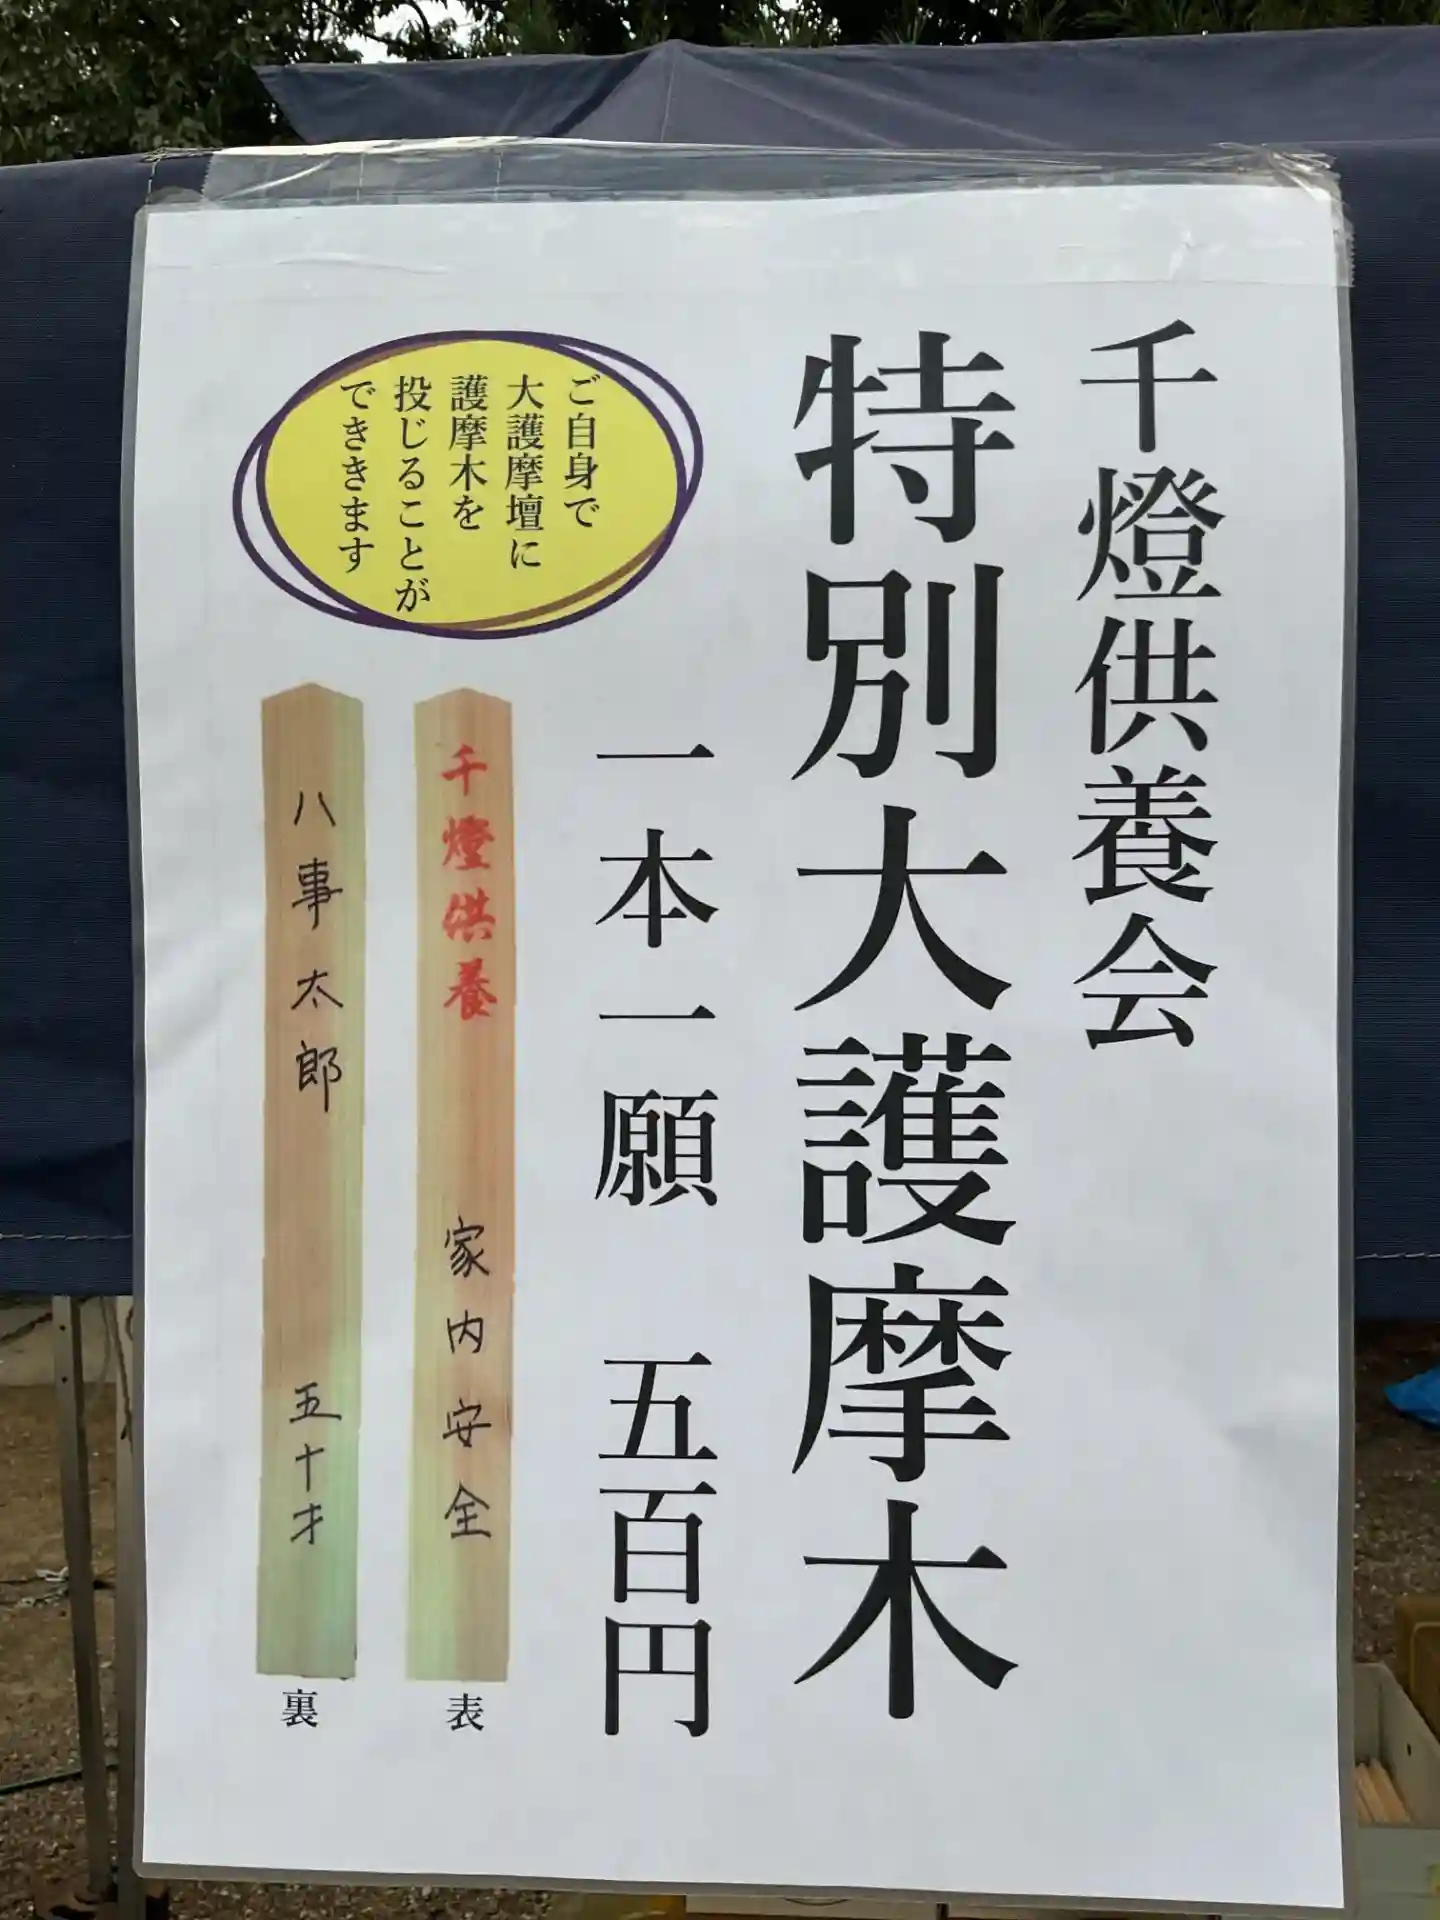 千燈供養会
特別大護摩木
一本一願　五百円
ご自身で
大護摩壇に
護摩木を
投じることが
でききます
千燈供養　家内安全
表
八事太郎　五十才
裏